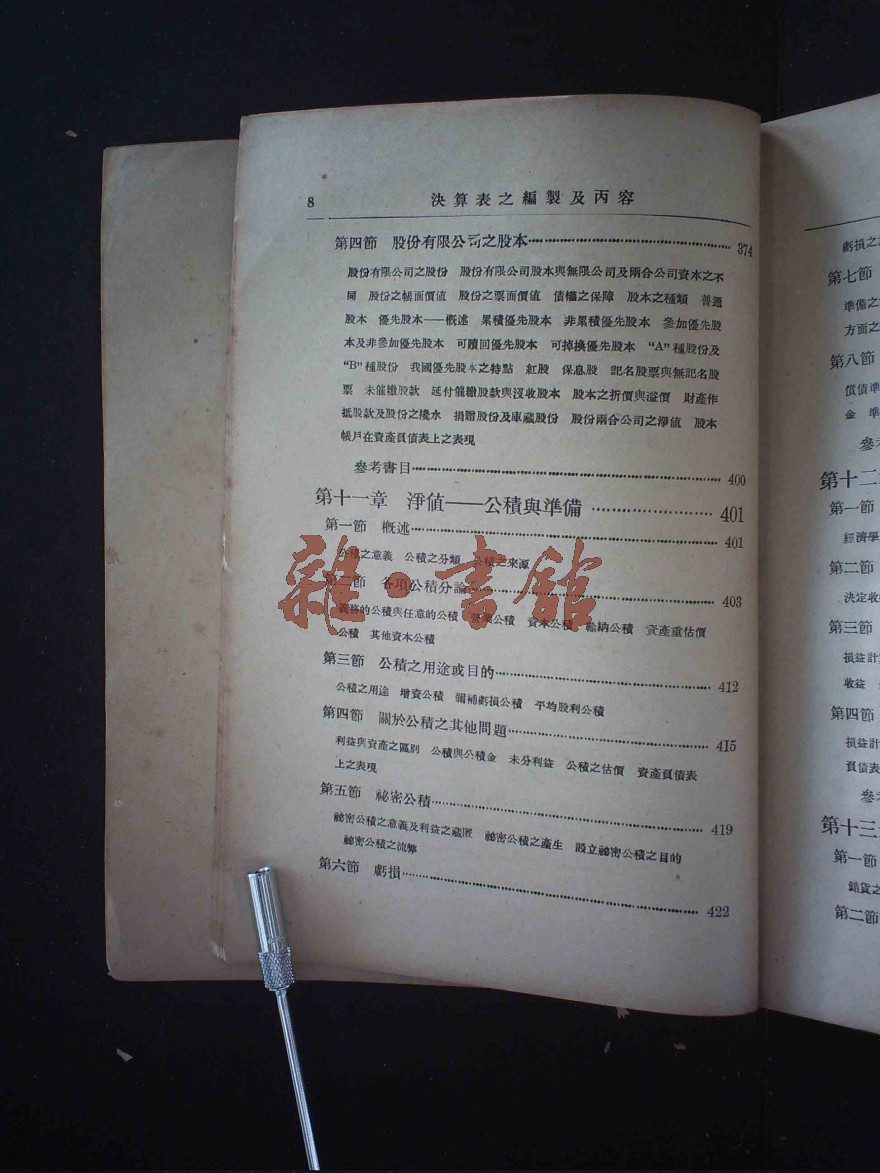 8
決算表之編製及丙容
第四節 股份有限公司之股本 374
股份有限公司之股份 股份有限公司股本與無限公司及兩合公司資本之不
同 股份之帳面價值 股份之票面價值 債權之保障 股本之種類 普通
股本 優先股本——概述 累積優先股本 非累積優先股本 參加優先股
本及非參加優先股本 可贖回優先股本 可掉換優先股本 “A”種股份及
“B”種股份 我國優先股本之特點 紅股 保息股 記名股票與無記名股
票 未催繳股款 延付催繳股款與沒收股本 股本之折價與溢價 財產作
抵股款及股份之攙水 捐贈股份及庫藏股份 股份兩合公司之淨值 股本
帳戶在資產負債表上之表現
參考書目 400
第十一章 淨值——公積與準備 401
第一節 概述 401
公積之意義 公積之分類 公積之來源
第二節 各項公積分論 403
義務的公積與任意的公積 公積 資本公積 輸納公積 資產重估價
公積 其他資本公積
第三節 公積之用途或目的 412
公積之用途 增資公積 彌補虧損公積 平均股利公積
第四節 關於公積之其他問題 415
利益與資產之區別 公積與公積金 未分利益 公積之估價 資產負債表
上之表現
第五節 祕密公積 419
祕密公積之意義及利益之藏匿 祕密公積之產生 設立祕密公積之目的
祕密公積之流弊
第六節 虧損 422
雜·書館
虧損之
第七節
準備之
方面之
第八節
償債準
金 準
參考
第十二
第一節
經濟學
第二節
決定收
第三節
損益計
收益
第四節
損益計
負債表
參考
第十三
第一節
銷貨之
第二節